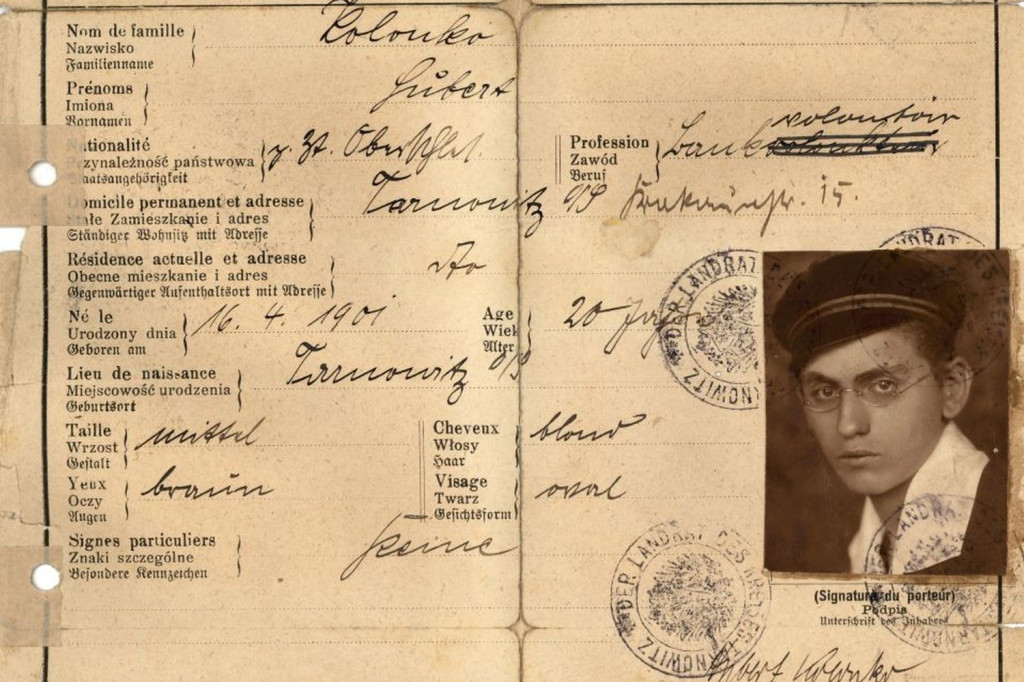 Nom de famille
Nazwisko
Familienname
Kolonko
Prénoms
Imiona
Vornamen
Hubert
tionalité
zynależność państwowa
aatsangehörigkeit
z. Zt. Oberschles.
Profession
Zawód
Beruf
Bank volontär
omicile permanent et adresse
ałe Zamieszkanie i adres
Ständiger Wohnsitz mit Adresse
Tarnowitz O/S Krakauerstr. 15.
Résidence actuelle et adresse
Obecne mieszkanie i adres
Gegenwärtiger Aufenthaltsort mit Adresse
dto
Né le
Urodzony dnia
Geboren am
16. 4. 1901
Age
Wiek
Alter
20 Jahre
Lieu de naissance
Miejscowość urodzenia
Geburtsort
Tarnowitz O/S
Taille
Wzrost
Gestalt
mittel
Cheveux
Włosy
Haar
blond
Yeux
Oczy
Augen
braun
Visage
Twarz
Gesichtsform
oval
Signes particuliers
Znaki szczególne
Besondere Kennzeichen
keine
DER LANDRAT
TARNOWITZ
(Signature du porteur)
Podpis
Unterschrift des Inhabers
DER LANDRAT DES KREISES
TARNOWITZ
Hubert Kolonko